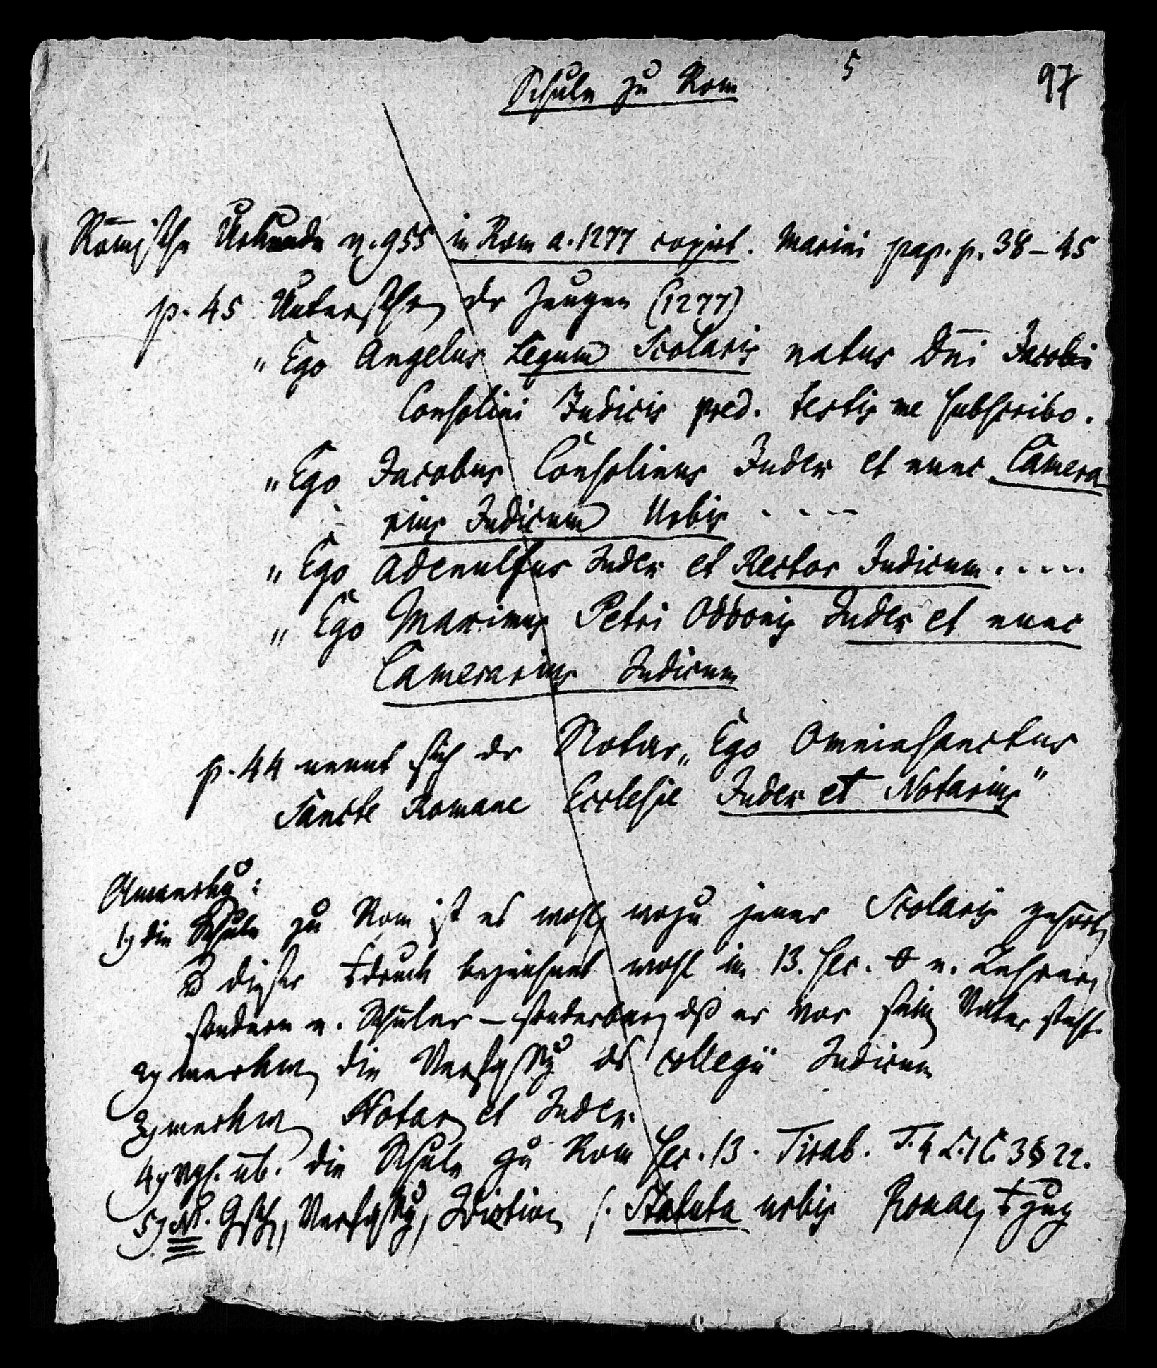 5 97
Schule zu Rom
Römische Urkunde v. 955 in Rom a. 1277 copirt. Marini pap. p. 38–45
p. 45 Unterschr der Zeugen (1277)
„Ego Angelus Legum Scolaris natus Dni Jacobi
Consolini Judicis pred. testis me subscribo.
„Ego Jacobus Consolinus Judex et nunc Camera
rius Judicum Urbis - - - -
„Ego Adenulfus Judex et Rector Judicum. . . . .
„Ego Marinus Petri Oddonis Judex et nunc
Camerarius Judicum
p. 44 nennt sich der Notar „Ego Omniasanctus
Sancte Romane Ecclesie Judex et Notarius"
Anmerkg:
1) die Schule zu Rom ist es wohl, wozu jener Scolaris gehört,
dieser druck bezeichnet wohl im 13. Sec. n. Lehrer,
sondern n. Schüler – sonderbar, dß er vor sein Vater steht
2) merkw die Verfassg des collegii Judicum
3) merkw Notar et Judex.
4) vgl. üb. die Schule zu Rom Sec. 13. Tirab. T. 4 L. 1 C. 3 § 22.
5) NB. Gsch, Verfassg, s. Statuta urbis Romae,